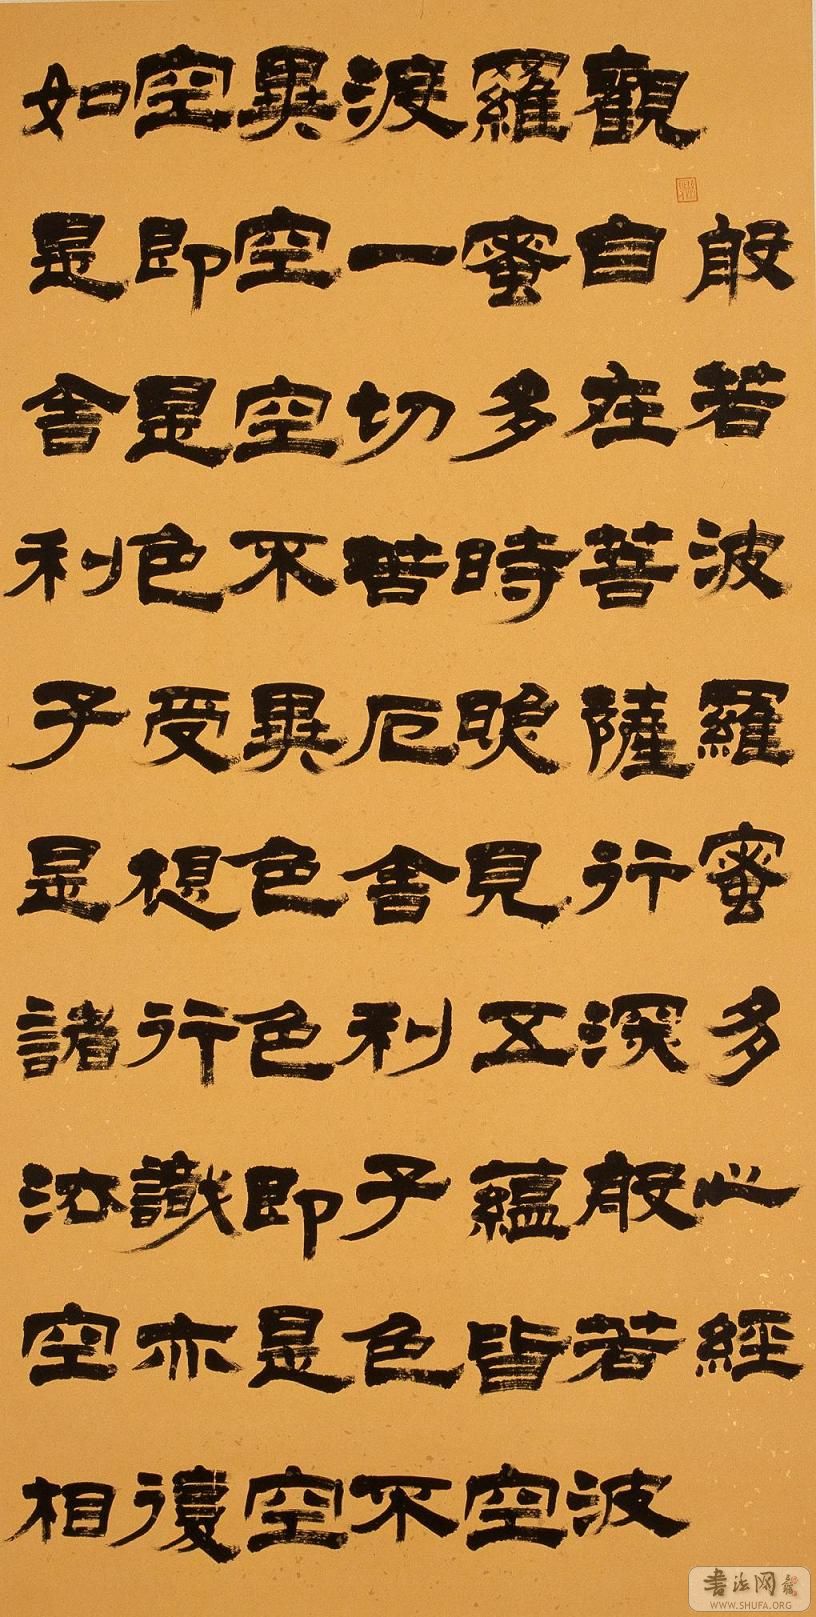 般若波羅蜜多心經
觀自在菩薩行深般若波
羅蜜多時照見五蘊皆空
渡一切苦厄舍利子色不
異空空不異色色即是空
空即是色受想行識亦復
如是舍利子是諸法空相
书法网
WWW.SHUFA.ORG